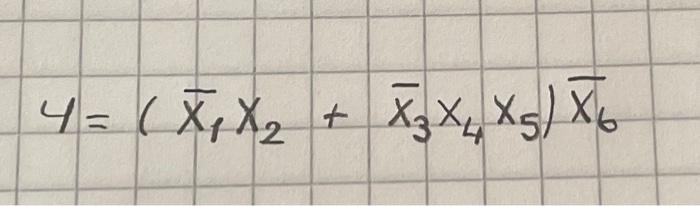 y = ( x̅₁ x₂ + x̅₃ x₄ x₅ ) x̅₆